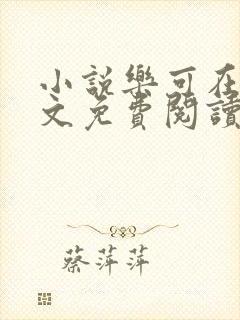 小說樂可在
文免費閱讀
蔡萍萍